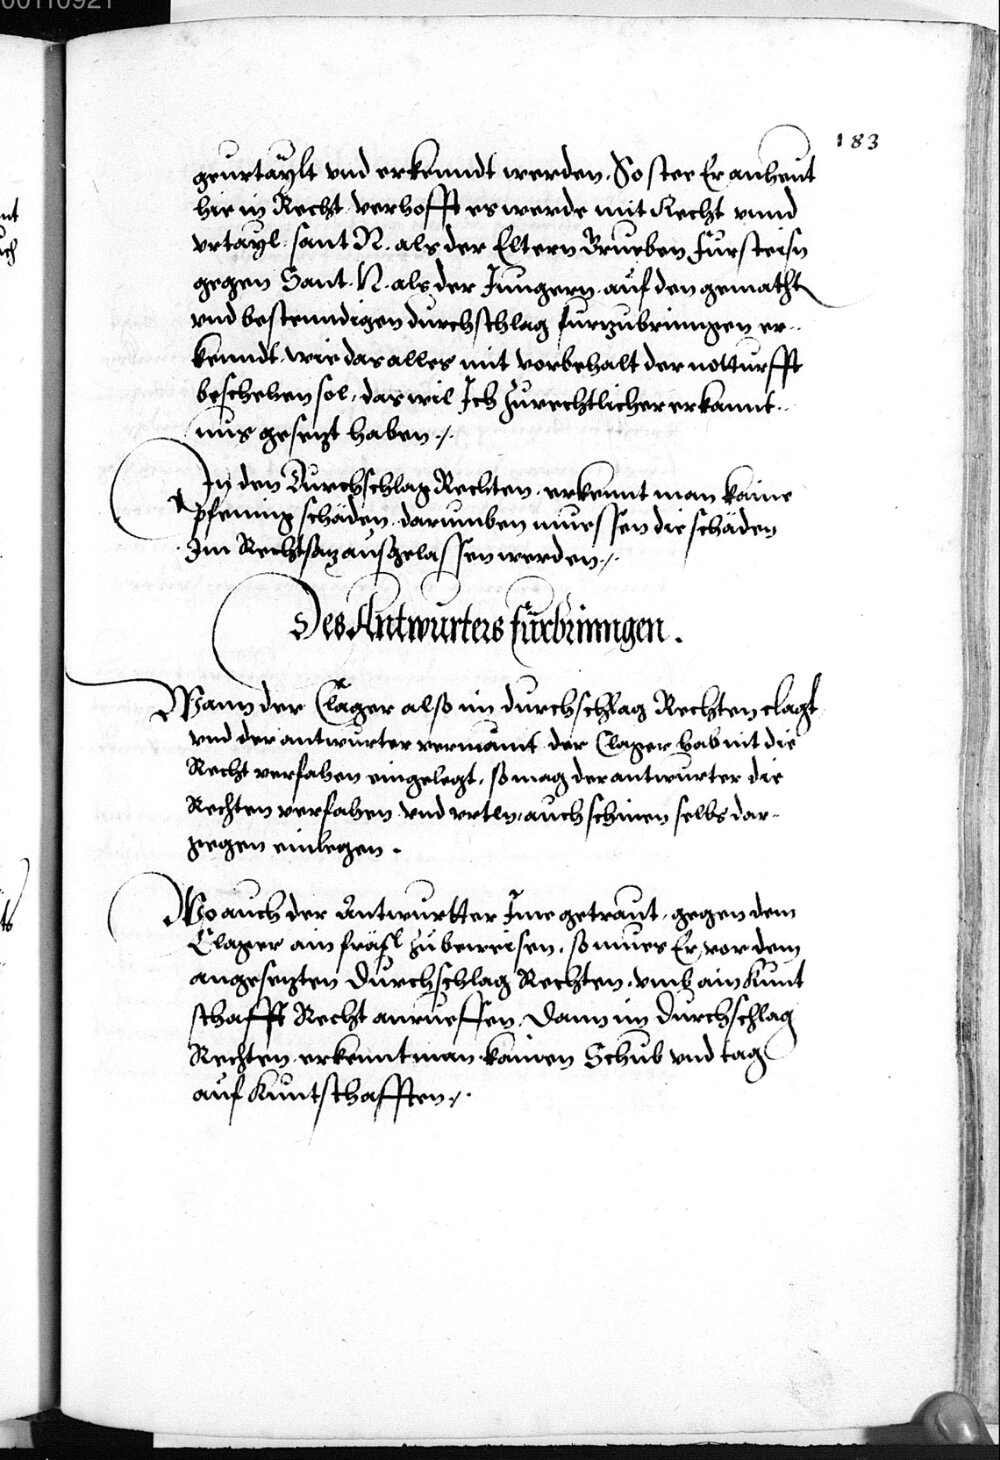 183
geurtaylt vnd erkenndt werden. So stee Er anheut
hie in Recht verhofft es werde mit Recht vnnd
vrtayl. sant N. als der Eltern Grueben Fursteisn
gegen Sant. N. als der Jungern. auf den gemacht
vnd bestenndigen durchschlag furzubringen er-
kenndt. wie das alles mit vorbehalt der notturfft
beschehen sol, das wil Ich zu rechtlicher erkannt-
nus gesetzt haben ./.
In den Durchschlag Rechten. erkennt man kaine
pfening schäden. darumben muessen die schäden
Im Rechtsaz außgelassen werden ./.
Des Antwurters fürbringen.
Wann der Clager also im durchschlag Rechten clagt
vnd der antwurter vermaint der Clager hab nit die
Recht verfahen eingelegt, so mag der antwurter die
Rechten verfahen vnd vrtln, auch schinen selbs dar-
gegen einlegen.
Wo auch der Antwurtter Ime getraut, gegen dem
Clager ain fräfl zubeweisen, so mues Er, vor dem
angesezten Durchschlag Rechten, vmb ain Kunt
schafft Recht anrueffen. Dann im Durchschlag
Rechten. erkennt man kainen Schub vnd tag
auf Kuntschafften ./.